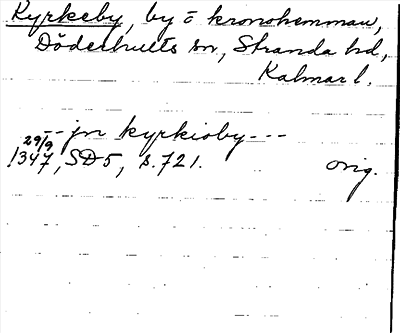 Kyrkeby, by o kronohemman,
Döderhults sn, Stranda hd,
Kalmar l.
-- jn kyrkioby ---
29/9
1347, SD 5, s. 721. orig.